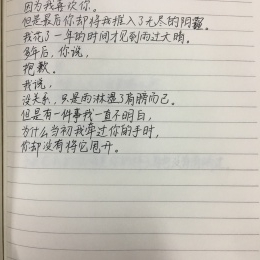 因为我喜欢你。
但是最后你却将我推入了无尽的阴霾。
我花了一年的时间才见到雨过天晴。
多年后，你说，
抱歉。
我说，
没关系，只是雨淋湿了肩膀而已。
但是有一件事我一直不明白，
为什么当初我牵过你的手时，
你却没有将它甩开。